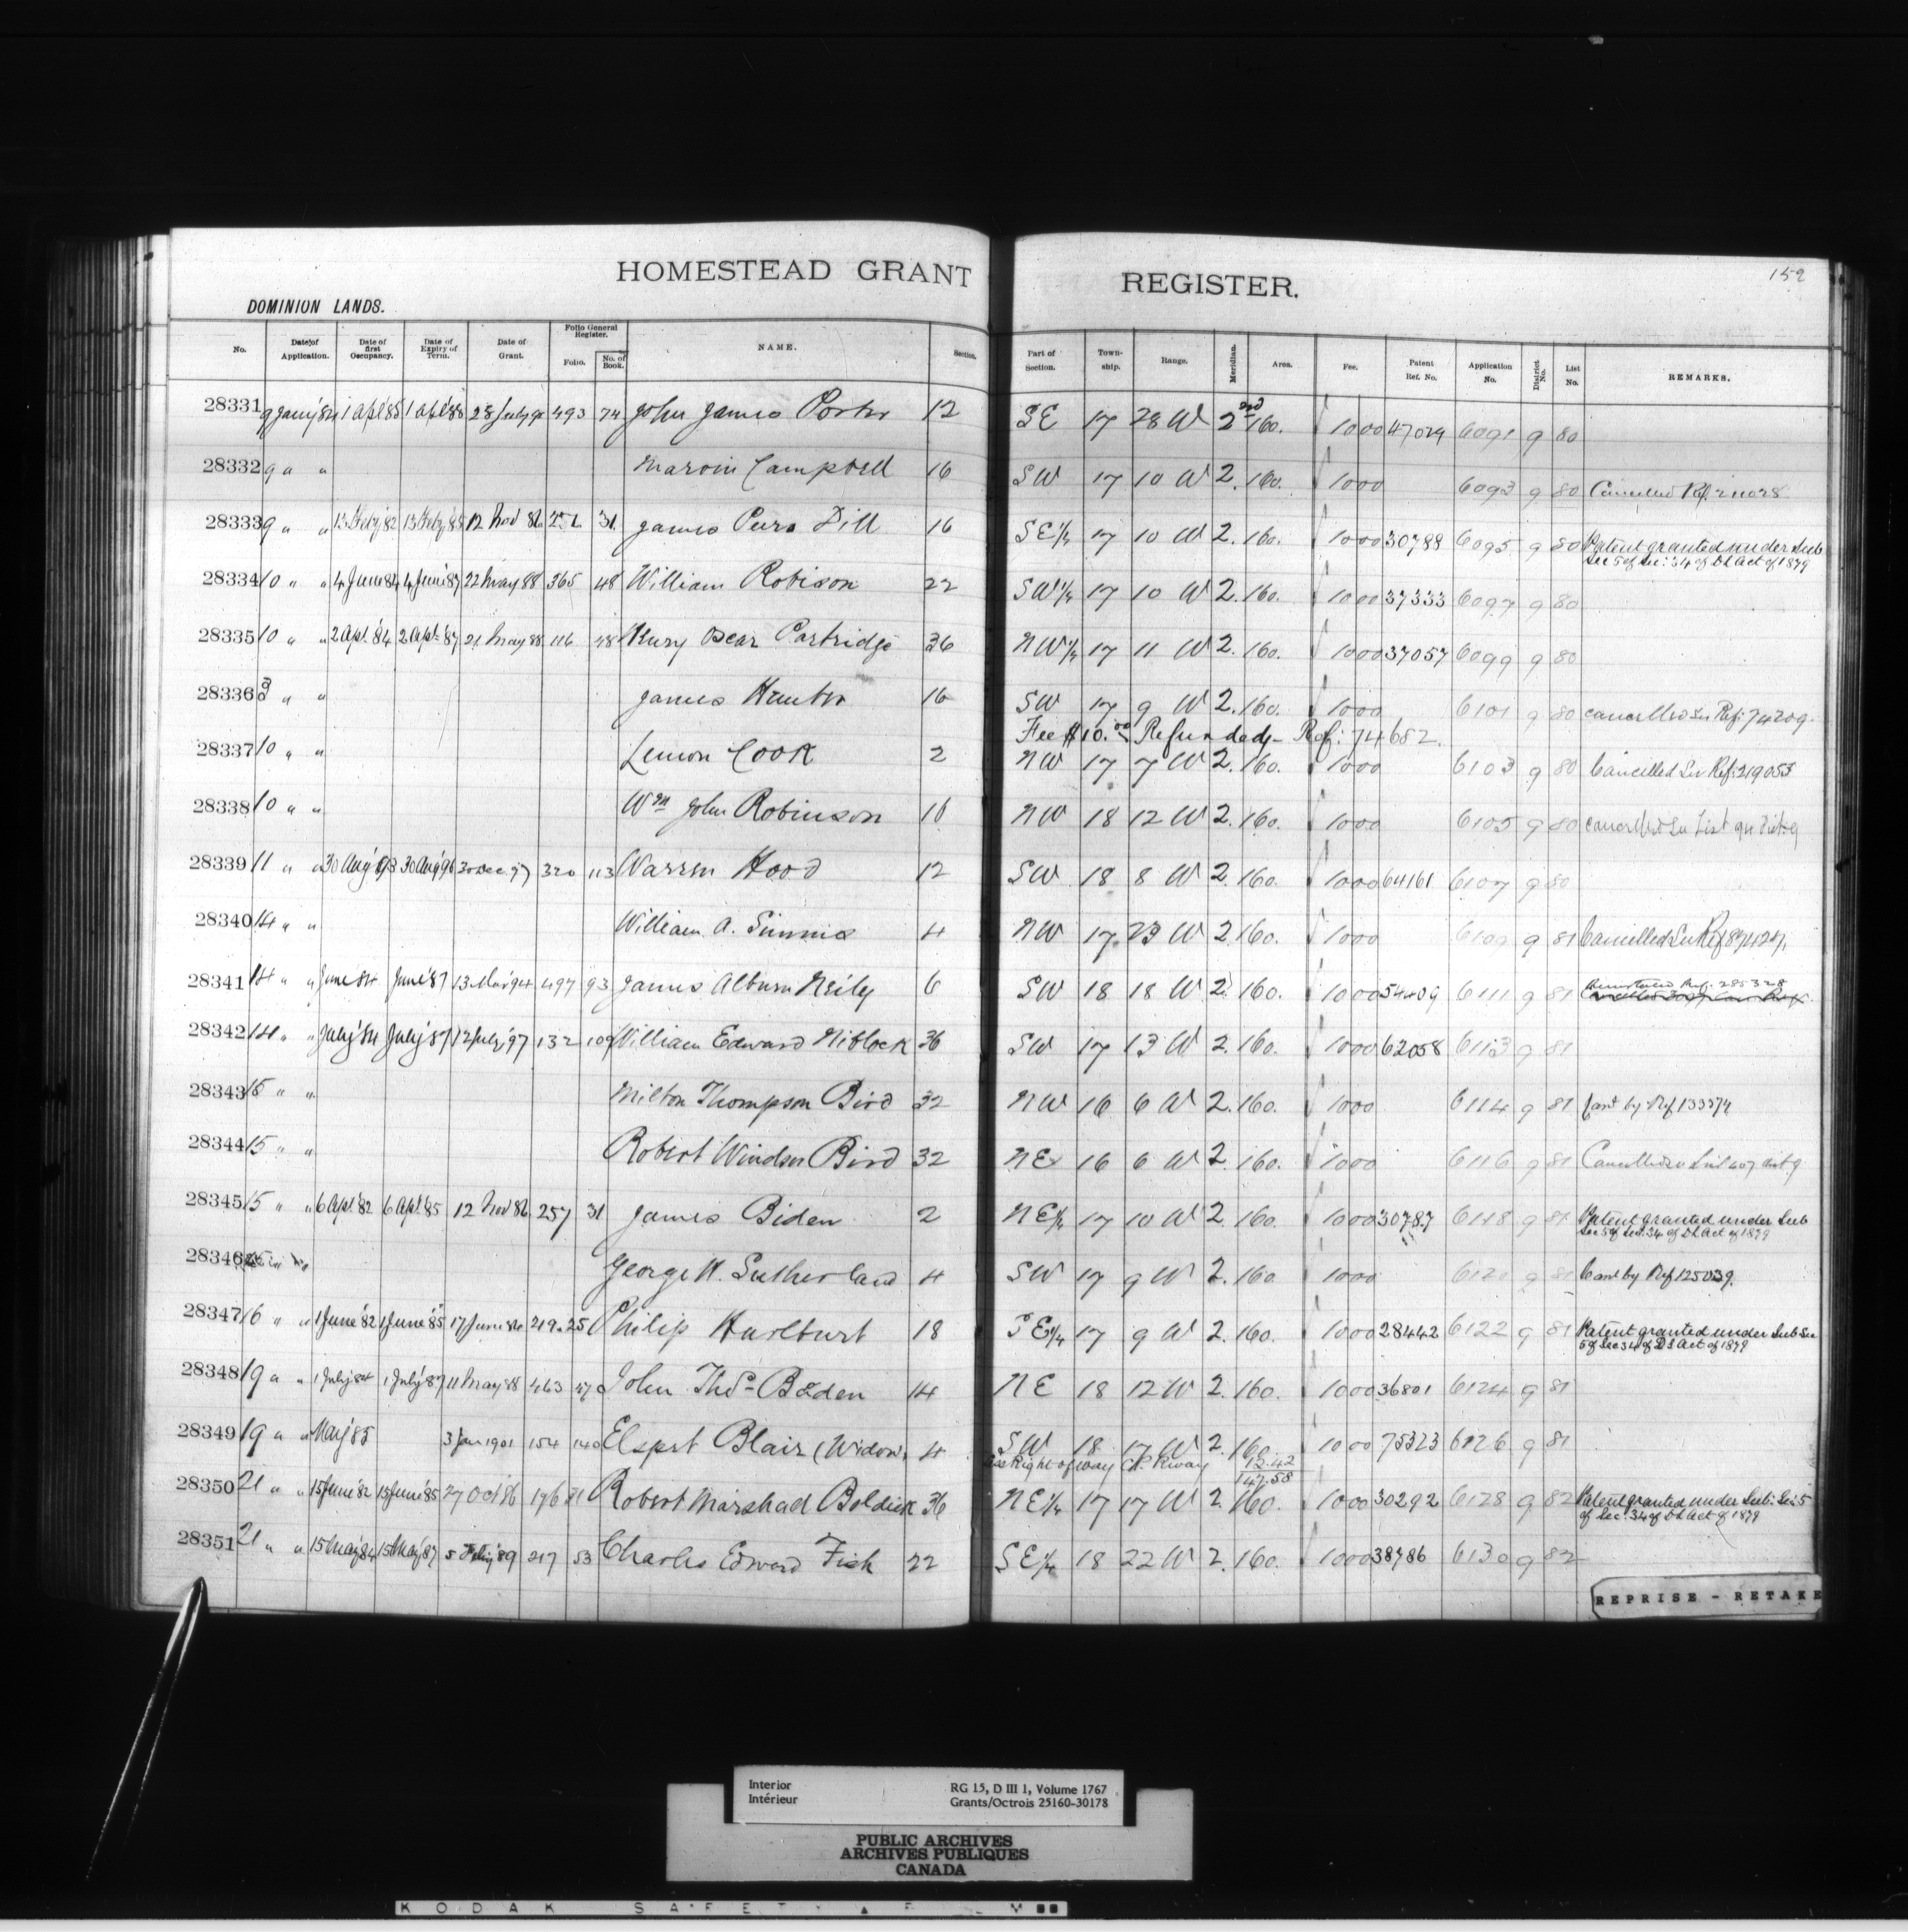 HOMESTEAD GRANT REGISTER.
152
DOMINION LANDS.
No. Date of Application. Date of first Occupancy. Date of Expiry of Term. Date of Grant. Folio General Register. Folio. No. of Book. NAME. Section. Part of Section. Town-ship. Range. Meridian. Area. Fee. Patent Ref. No. Application No. District No. List No. REMARKS.
28331 9 Jany '84 1 Apl '85 1 Apl '88 493 74 John James Porter 12 SE 17 28 W 2nd 160. 1000 47029 6091 9 80
28332 9 " " Marvin Campbell 16 SW 17 10 W 2. 160. 1000 6093 9 80 Cancelled Ref. 211028
28333 9 " " 13 Feby '82 13 Feby '85 12 Nov 86 31 James Dill 16 SE¼ 17 10 W 2. 160. 1000 30788 6095 9 80 Patent granted under Sub
Sec 5 of Sec: 34 of DL Act of 1879
28334 10 " " 4 June 84 4 June '87 22 May 88 365 48 William Robison 22 SW¼ 17 10 W 2. 160. 1000 37333 6097 9 80
28335 10 " " 2 Apl. '84 2 Apl. '87 21 May 88 116 48 Oscar Partridge 36 NW¼ 17 11 W 2. 160. 1000 37057 6099 9 80
28336 " " James Hunter 16 SW 17 9 W 2. 160. 1000 6101 9 80 cancelled See Ref: 74209.
Fee $10.00 Refunded - Ref: 74682.
28337 10 " " Lemon Cook 2 NW 17 7 W 2. 160. 1000 6103 9 80 Cancelled See Ref: 219055
28338 10 " " Wm John Robinson NW 18 12 W 2. 160. 1000 6105 9 80 cancelled See List
28339 11 " " 30 Aug '93 30 Aug '96 30 Dec 97 320 113 Warren Hood 12 SW 18 8 W 2. 160. 1000 64161 6107 9 80
28340 14 " " William A. Simms 4 NW 17 23 W 2. 160. 1000 6109 9 81 Cancelled See Ref
28341 14 " " June 84 June '87 13 Mar '94 497 93 James Album Neily 6 SW 18 18 W 2. 160. 1000 54409 6111 9 81 Ref. 285328
28342 14 " " July '84 July '87 12 July '97 132 109 William Edward Niblock 36 SW 17 13 W 2. 160. 1000 62058 6113 9 81
28343 15 " " Milton Thompson Bird 32 NW 16 6 W 2. 160. 1000 6114 9 81 Cant by Ref
28344 15 " " Robert Windsor Bird 32 NE 16 6 W 2. 160. 1000 6116 9 81 Cancelled
28345 15 " " 6 Apl. 82 6 Apl. '85 12 Nov 86 257 31 James Biden 2 NE¼ 17 10 W 2. 160. 1000 30787 6118 9 81 Patent granted under Sub
Sec 5 of Sec. 34 of DL Act of 1879
28346 George H. Sutherland 4 SW 17 9 W 2. 160. 1000 6120 9 81 Cant by Ref 125039.
28347 16 " " 1 June '82 1 June '85 17 June 86 219. 25 Philip Hurlburt 18 SE¼ 17 9 W 2. 160. 1000 28442 6122 9 81 Patent granted under Sub Sec
5 of Sec 34 of DL Act of 1879
28348 19 " " 1 July 84 1 July '87 11 May '88 463 47 John Thos. Boden 14 NE 18 12 W 2. 160. 1000 36801 6124 9 81
28349 19 " " May '85 3 Jan 1901 154 140 Elspet Blair (Widow) 4 SW 18 17 W 2. 160. 1000 75323 6126 9 81
Right of way Rway 12.42
147.58
28350 21 " " 15 June '82 15 June '85 27 Oct 86 176 31 Robert Marshad Boldick 36 NE¼ 17 17 W 2. 160. 1000 30292 6128 9 82 Patent granted under Sub: Sec: 5
of Sec: 34 of DL Act of 1879
28351 21 " " 15 May '84 15 May '87 5 Feby '89 217 53 Charles Edward Fish 22 SE¼ 18 22 W 2. 160. 1000 38786 6130 9 82
REPRISE - RETAKE
Interior
Intérieur
RG 15, D III 1, Volume 1767
Grants/Octrois 25160-30178
PUBLIC ARCHIVES
ARCHIVES PUBLIQUES
CANADA
KODAK SAFETY